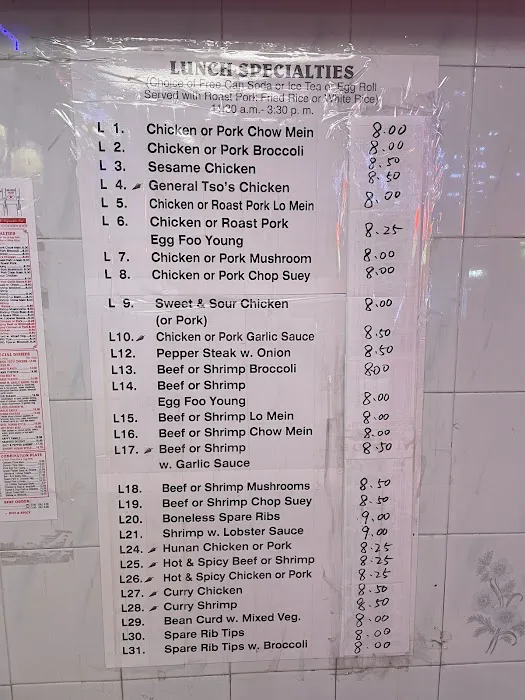 LUNCH SPECIALTIES
(Choice of Free Can Soda or Ice Tea or Egg Roll
Served with Roast Pork Fried Rice or White Rice)
11:30 a.m.- 3:30 p. m.
L 1. Chicken or Pork Chow Mein 8.00
L 2. Chicken or Pork Broccoli 8.00
L 3. Sesame Chicken 8.50
L 4. General Tso's Chicken 8.50
L 5. Chicken or Roast Pork Lo Mein 8.00
L 6. Chicken or Roast Pork
Egg Foo Young 8.25
L 7. Chicken or Pork Mushroom 8.00
L 8. Chicken or Pork Chop Suey 8.00
L 9. Sweet & Sour Chicken 8.00
(or Pork)
L10. Chicken or Pork Garlic Sauce 8.50
L12. Pepper Steak w. Onion 8.50
L13. Beef or Shrimp Broccoli 800
L14. Beef or Shrimp
Egg Foo Young 8.00
L15. Beef or Shrimp Lo Mein 8.00
L16. Beef or Shrimp Chow Mein 8.00
L17. Beef or Shrimp 8.50
w. Garlic Sauce
L18. Beef or Shrimp Mushrooms 8.50
L19. Beef or Shrimp Chop Suey 8.50
L20. Boneless Spare Ribs 9.00
L21. Shrimp w. Lobster Sauce 9.00
L24. Hunan Chicken or Pork 8.25
L25. Hot & Spicy Beef or Shrimp 8.25
L26. Hot & Spicy Chicken or Pork 8.25
L27. Curry Chicken 8.50
L28. Curry Shrimp 8.50
L29. Bean Curd w. Mixed Veg. 8.00
L30. Spare Rib Tips 8.00
L31. Spare Rib Tips w. Broccoli 8.00